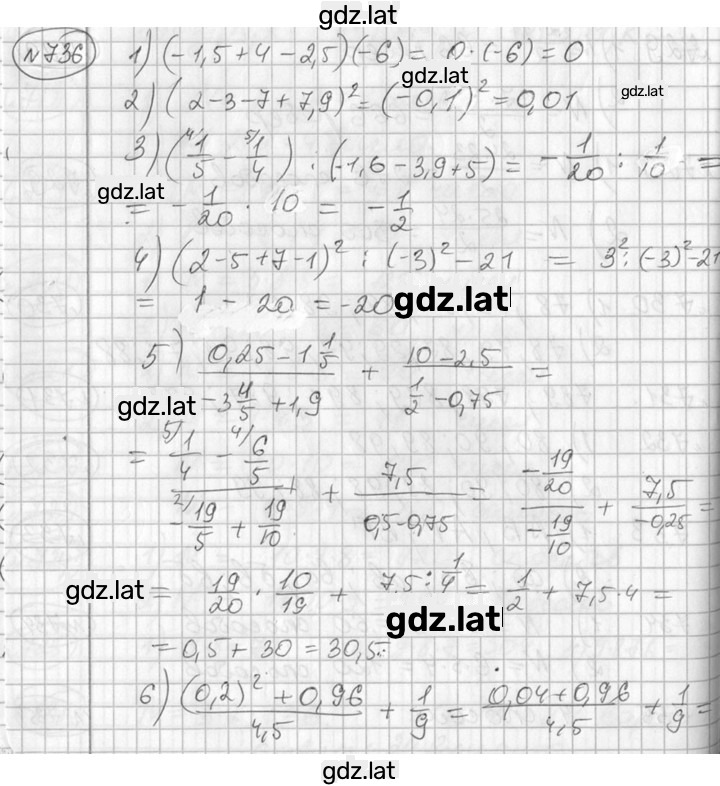 gdz.lat
№736 1) (-1,5+4-2,5)(-6)= 0·(-6)=0
gdz.lat
2) (2-3-7+7,9)²=(-0,1)²=0,01
gdz.lat
3) (⁴⁾1/5 - ⁵⁾1/4) : (-1,6-3,9+5) = -1/20 : 1/10 =
gdz.lat
= -1/20 · 10 = -1/2
4) (2-5+7-1)² : (-3)²-21 = 3²:(-3)²-21
= 1 - 20 = -20
gdz.lat
5) (0,25-1 1/5)/(-3 4/5 +1,9) + (10-2,5)/(1/2 -0,75) =
gdz.lat
= (⁵⁾1/4 - ⁴⁾6/5)/(²⁾-19/5 + 19/10) + 7,5/(0,5-0,75) = (-19/20)/(-19/10) + 7,5/-0,25 =
gdz.lat
= 19/20 · 10/19 + 7.5:1/4 = 1/2 + 7,5·4 =
gdz.lat
= 0,5+30=30,5
6) ((0,2)²+0,96)/4,5 + 1/9 = (0,04+0,96)/4,5 + 1/9 =
gdz.lat